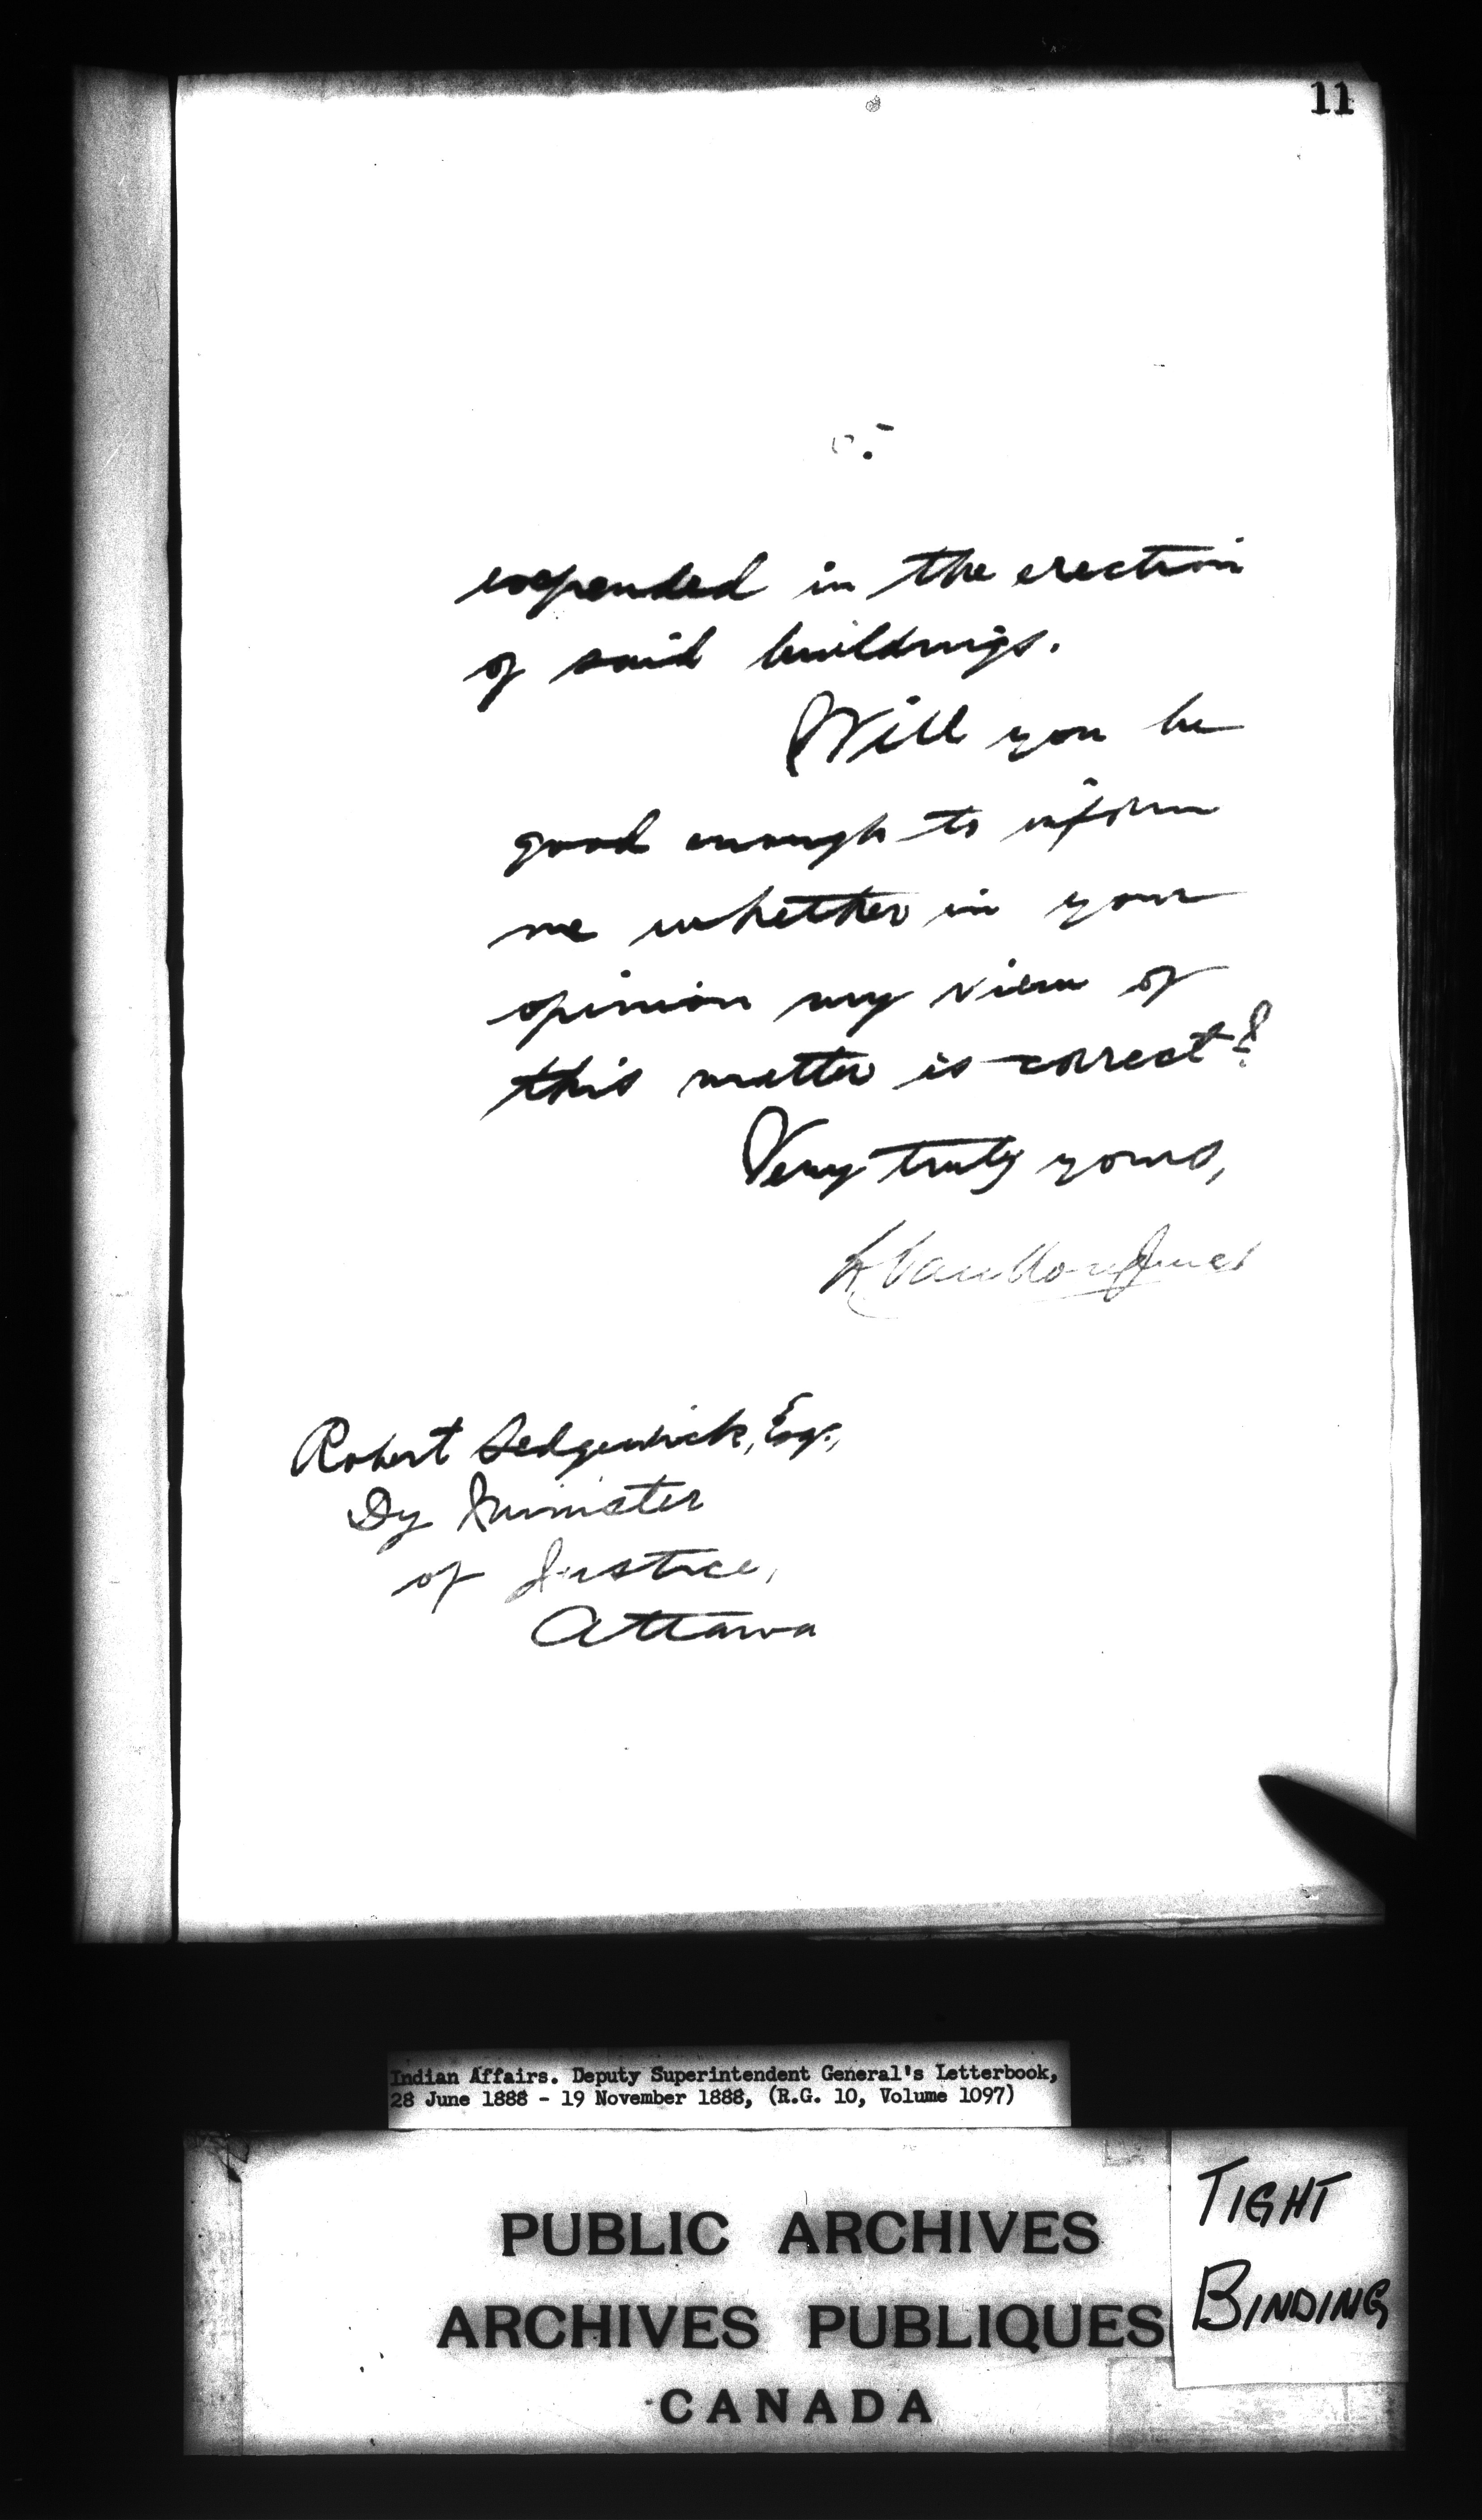 11
5.
expended in the erection
of said buildings.
Will you be
good enough to inform
me whether in your
opinion my view of
this matter is correct?
Very truly yours,
L. Vankoughnet
Robert Sedgewick, Esq.,
Dy Minister
of Justice,
Ottawa
Indian Affairs. Deputy Superintendent General's Letterbook,
28 June 1888 - 19 November 1888, (R.G. 10, Volume 1097)
PUBLIC ARCHIVES
ARCHIVES PUBLIQUES
CANADA
TIGHT
BINDING